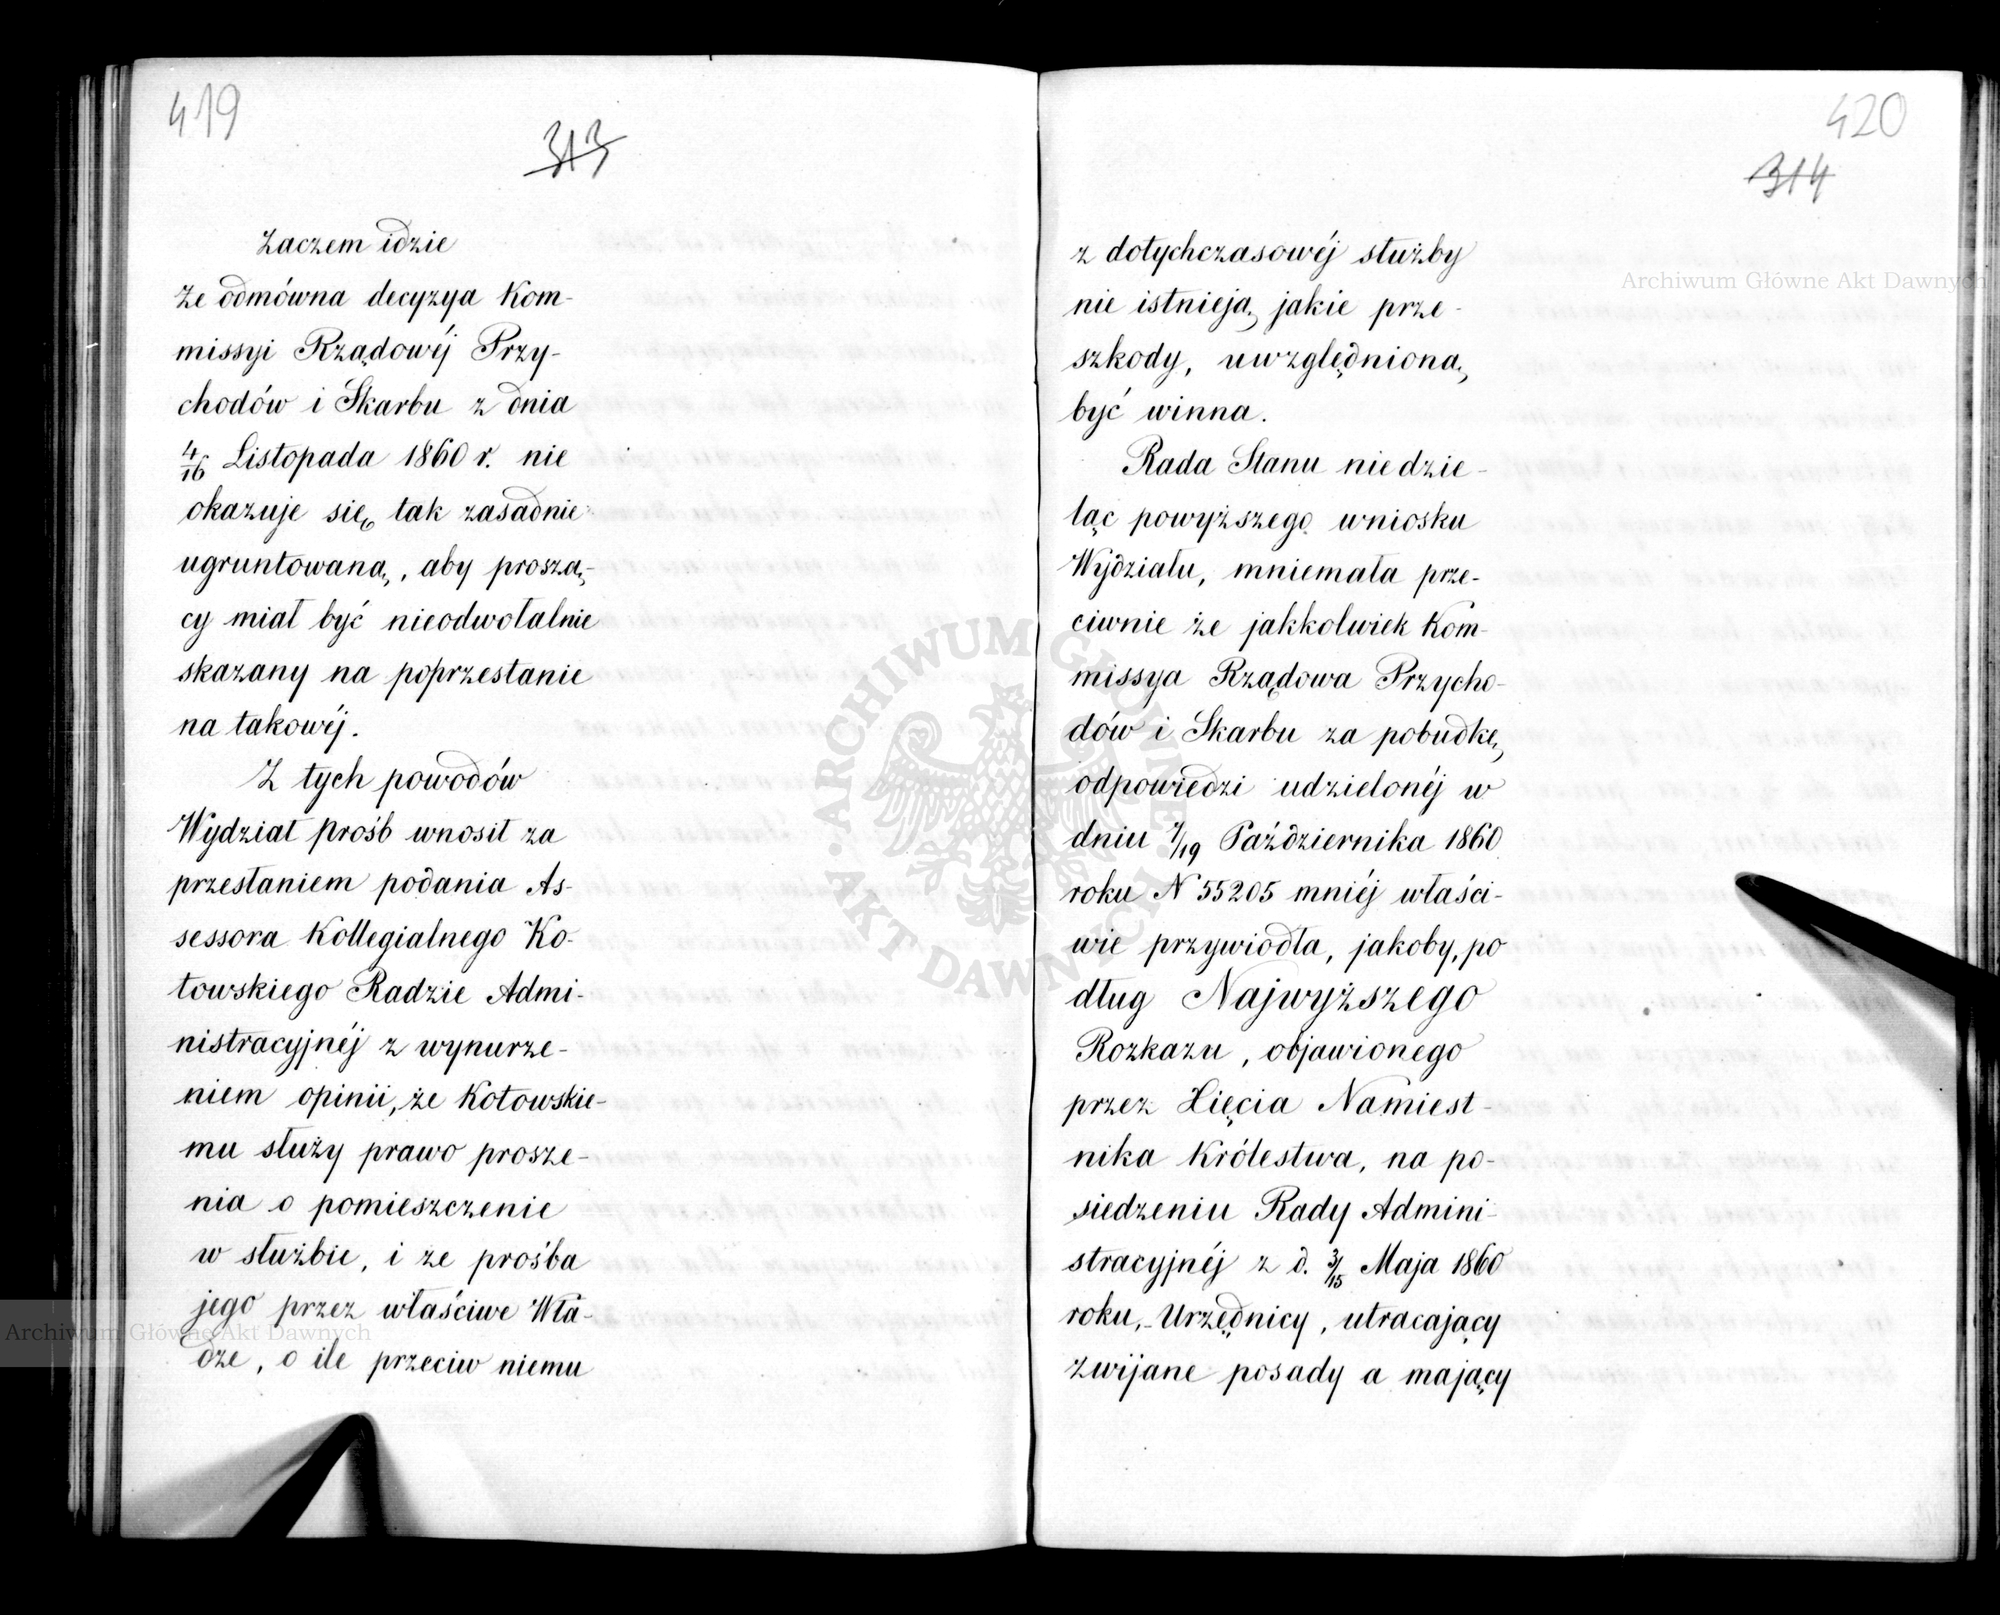 419
313
Zaczem idzie
że odmówna decyzya Kom-
missyi Rządowéj Przy-
chodów i Skarbu z dnia
4/16 Listopada 1860 r. nie
okazuje się tak zasadnie
ugruntowaną, aby proszą-
cy miał być nieodwołalnie
skazany na poprzestanie
na takowéj.
Z tych powodów
Wydział próśb wnosił za
przesłaniem podania As-
sessora Kollegialnego Ko-
towskiego Radzie Admi-
nistracyjnéj z wynurze-
niem opinii, że Kotowskie-
mu służy prawo prosze-
nia o pomieszczenie
w służbie, i że prośba
jego przez właściwe Wła-
dze, o ile przeciw niemu
420
314
z dotychczasowéj służby
nie istnieją jakie prze-
szkody, uwzględnioną
być winna.
Rada Stanu niedzie-
ląc powyższego wniosku
Wydziału, mniemała prze-
ciwnie że jakkolwiek Kom-
missya Rządowa Przycho-
dów i Skarbu za pobudkę
odpowiedzi udzielonéj w
dniu 7/19 Października 1860
roku N 55205 mniéj właści-
wie przywiodła, jakoby, po
dług Najwyższego
Rozkazu, objawionego
przez Xięcia Namiest-
nika Królestwa, na po-
siedzeniu Rady Admini-
stracyjnéj z d. 3/15 Maja 1860
roku, Urzędnicy, utracający
zwijane posady a mający
Archiwum Główne Akt Dawnych
Archiwum Główne Akt Dawnych
ARCHIWUM GŁÓWNE AKT DAWNYCH